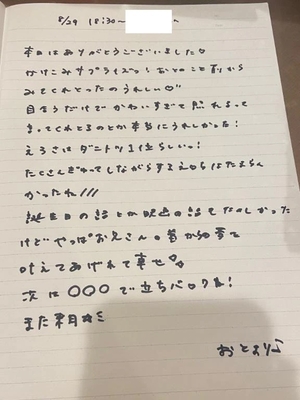 8/29 18:30~
本日はありがとうございました♡
かけこみサプライズっ!おとのこと前から
みてくれとったのうれしい♡
目合うだけでかわいすぎて照れるって
言ってくれとるのとか本当にうれしかった!
えろさはダントツ1位らしいっ!
たくさんぎゅってしながらするえっちはたまらん
かったね///
誕生日の話とか映画の話もたのしかった
けどやっぱお兄さんの昔からの夢を
叶えてあげれて幸せ♡
次は〇〇〇で立ちバックね!
また来月☆ミ
おとより♪